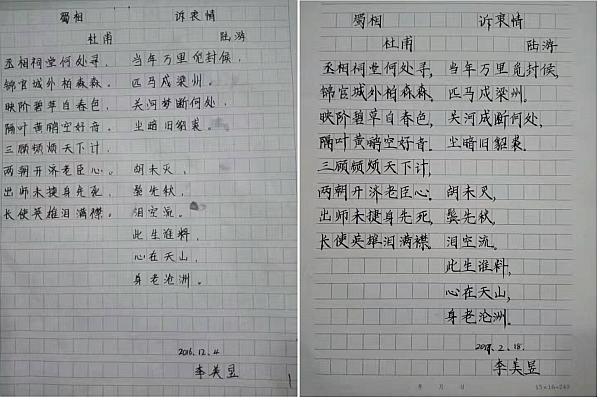 蜀相 诉衷情
杜甫 陆游
丞相祠堂何处寻， 当年万里觅封候，
锦官城外柏森森。 匹马戍梁州。
映阶碧草自春色， 关河梦断何处，
隔叶黄鹂空好音。 尘暗旧貂裘。
三顾频烦天下计，
两朝开济老臣心。 胡未灭，
出师未捷身先死， 鬓先秋，
长使英雄泪满襟。 泪空流。
此生谁料，
心在天山，
身老沧洲。
2016.12.4
李美昱
蜀相 诉衷情
杜甫 陆游
丞相祠堂何处寻， 当年万里觅封候，
锦官城外柏森森。 匹马戍梁州。
映阶碧草自春色， 关河成断何处，
隔叶黄鹂空好音。 尘暗旧貂裘。
三顾频烦天下计，
两朝开济老臣心。 胡未灭，
出师未捷身先死， 鬓先秋，
长使英雄泪满襟。 泪空流。
此生谁料，
心在天山，
身老沧洲。
2017.2.18.
李美昱
年 月 日 15×16=240